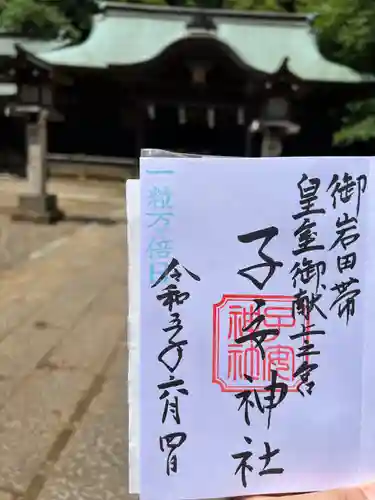 御岩田帯
皇室御献上之宮
子安神社
子安
神社
一粒万倍日
令和五年
六月四日